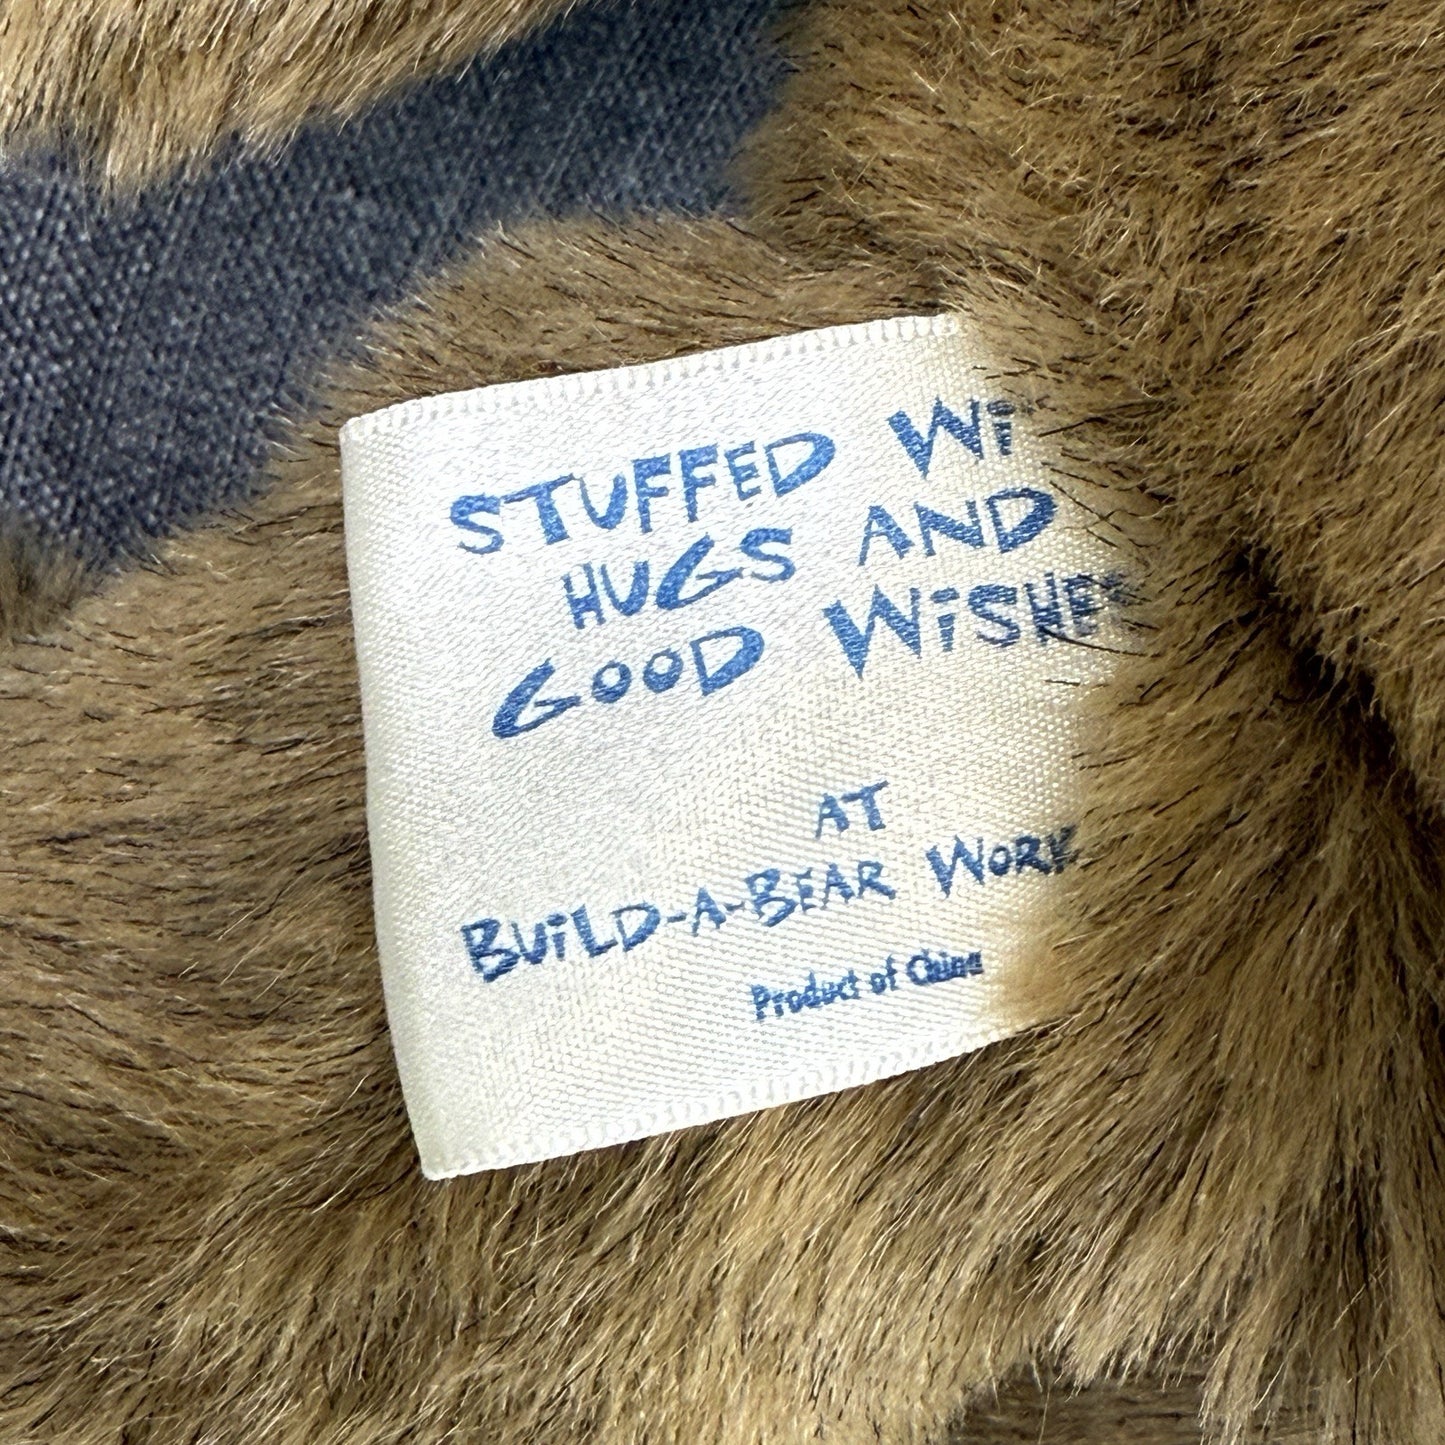 STUFFED Wi
HUGS AND
GOOD WiSHES
AT
BUiLD-A-BEAR WORK
Product of China